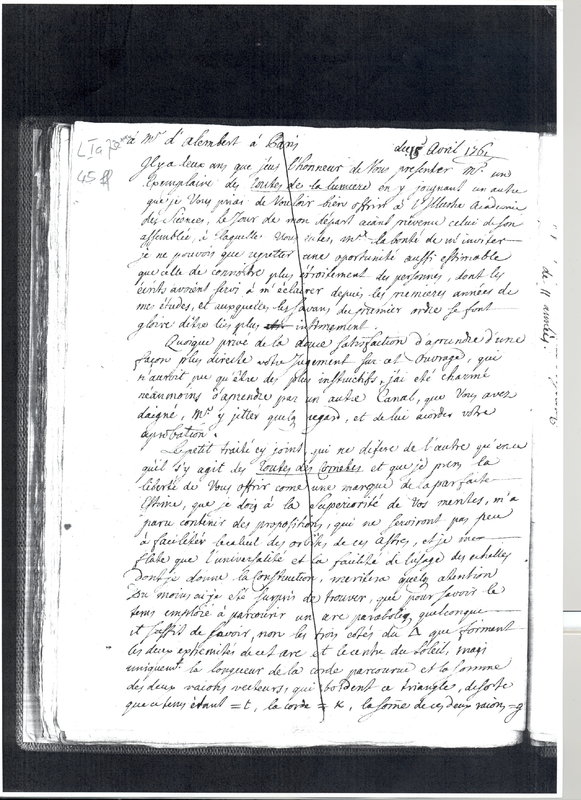 à Mr d'alembert à Paris du 15 Avril 1761
LIa 738
45
Il y a deux ans que j'eus l'honneur de Vous presenter Mr. un
Exemplaire des Routes de la lumiere en y joignant un autre
que je Vous priai de Vouloir bien offrir à l'Illustre Academie
des Sciences, le Jour de mon départ aiant prévenu celui de son
assemblée, à laquelle Vous eutes, Mr. la bonté de m'inviter
je ne pouvois que regretter une oportunité aussi estimable
que celle de connoitre plus étroitement des personnes, dont les
écrits avoient servi à m'éclairer depuis les premieres années de
mes études, et auxquelles les savans du premier ordre se font
gloire d'être les plus intimement.
Quoique privé de la douce satisfaction d'aprendre d'une
façon plus directe votre Jugement sur cet Ouvrage, qui
n'auroit pu qu'être des plus instructifs, j'ai eté charmé
néanmoins d'aprendre par un autre Canal, que Vous avez
daigné, Mr. y jetter quelq regard, et de lui acorder votre
aprobation.
Le petit traité cy joint, qui ne difere de l'autre qu'en ce
qu'il s'y agit des Routes des Cometes et que je prens la
liberté de Vous offrir come une marque de la parfaite
Estime, que je dois à la Superiorité de Vos merites, m'a
paru contenir des propositions, qui ne serviront pas peu
à faciliter le calcul des orbites de ces Astres, et je me
flate que l'universalité et la facilité de l'usage des echelles
dont je donne la Construction, meritera quelq attention
Du moins ai je eté surpris de trouver, que pour savoir le
tems emploié à parcourir un arc paraboliq quelconque
il suffit de savoir, non les trois cotés du Δ que forment
les deux extremités de cet arc et le centre du Soleil, mais
uniquemt. la longueur de la corde parcourue et la somme
des deux raions vecteurs, qui bordent ce triangle, desorte
que ce tems étant = t, la corde = k, la some de ces deux raions = g